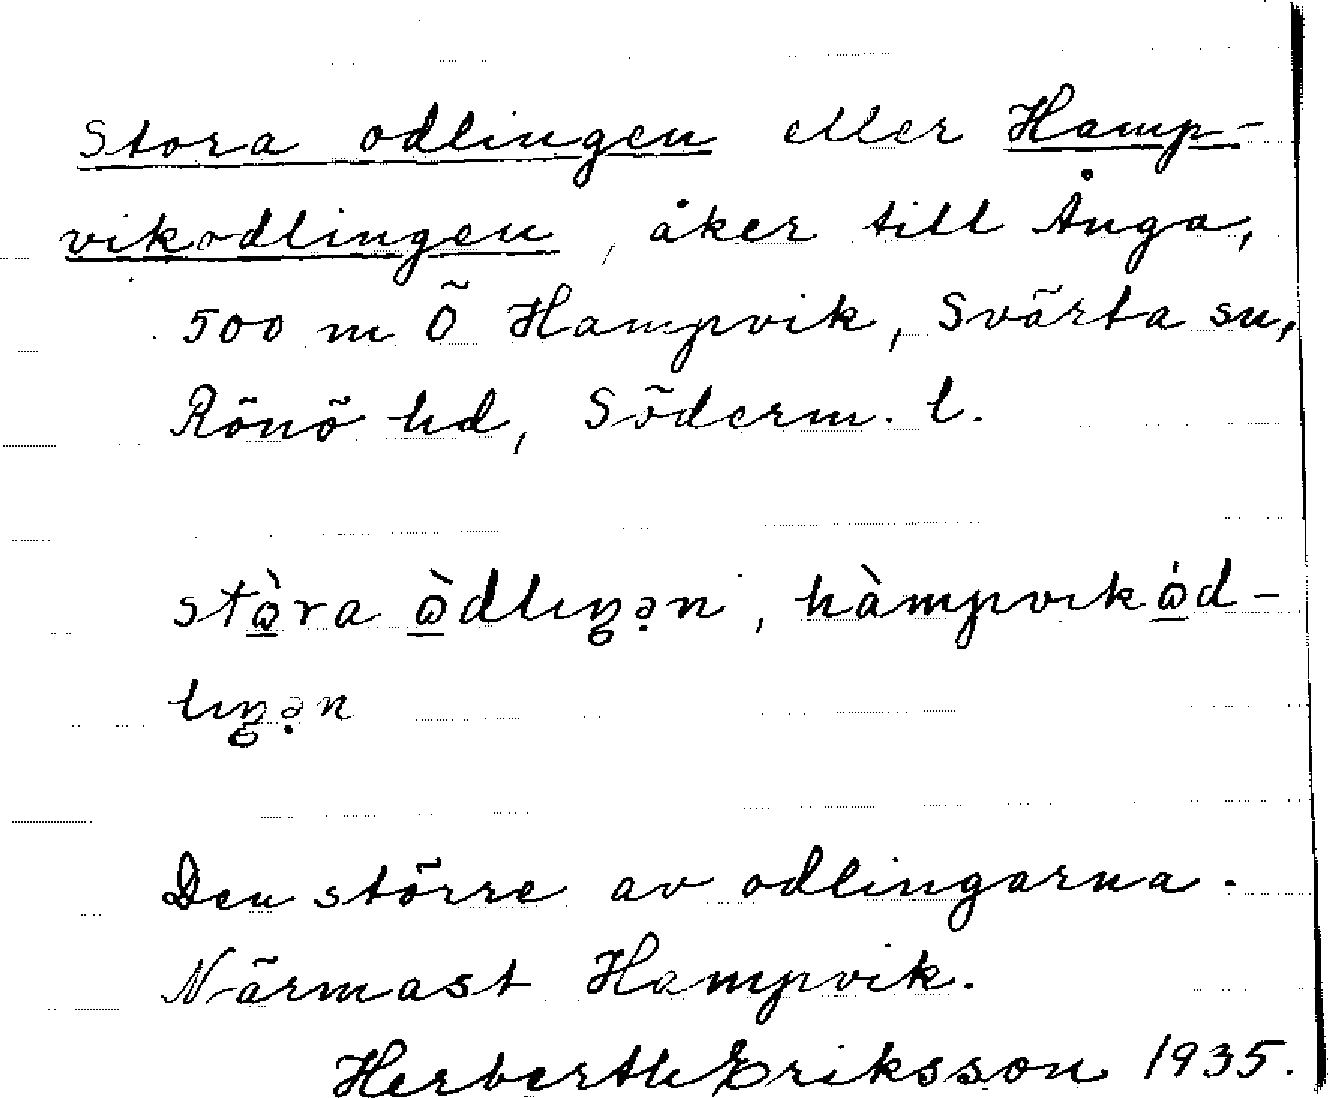 Stora odlingen eller Hamp-
vikodlingen, åker till Ånga,
500 m Ö Hampvik, Svärta sn,
Rönö hd, Söderm. l.
stò̱ra ò̱dlɪŋən, hàmpvɪkó̱d-
lɪŋən
Den större av odlingarna.
Närmast Hampvik.
Herberth Eriksson 1935.